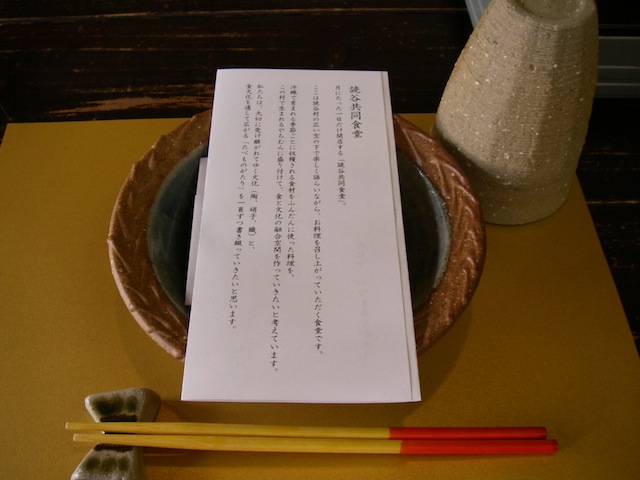 読谷共同食堂
月にたった一日だけ開店する「読谷共同食堂」。
ここは読谷村の広い空の下で楽しく語らいながら、お料理を召し上がっていただく食堂です。
沖縄で育まれる季節ごとに収穫される食材をふんだんに使った料理を、
この村で生まれるやちむんに盛り付けて、食と文化の融合空間を作っていきたいと考えています。
私たちは、大切に受け継がれてゆく文化（陶、硝子、織）と、
食文化を通して広がる「たべものがたり」を一頁ずつ書き綴っていきたいと思います。